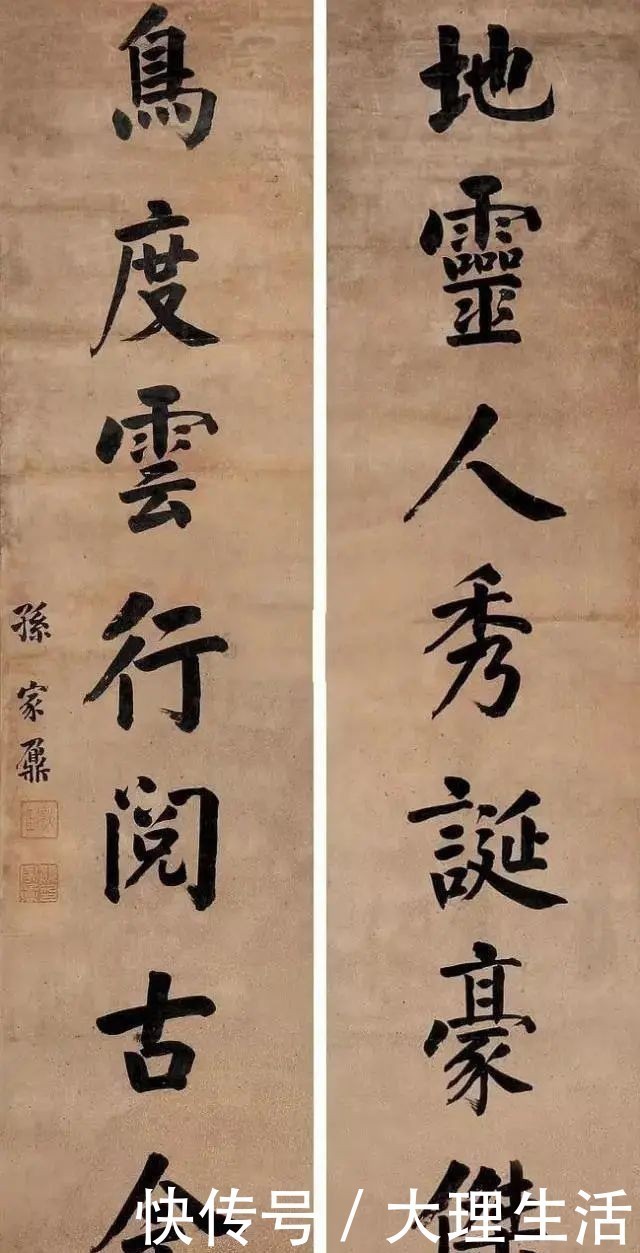 地靈人秀誕豪傑
鳥度雲行閱古今
孫家鼐
快传号 / 大理生活